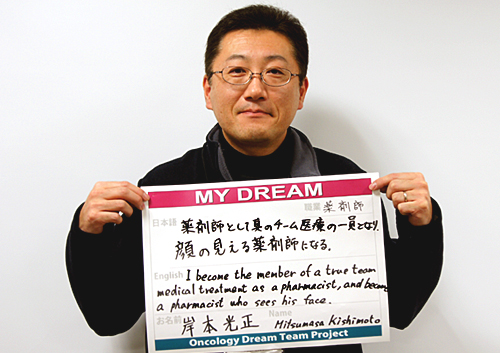 MY DREAM
職業 薬剤師
日本語 薬剤師として真のチーム医療の一員となり、
顔の見える薬剤師になる。
English I become the member of a true team
medical treatment as a pharmacist, and become
a pharmacist who sees his face.
お名前 岸本光正 Name Mitsumasa Kishimoto
Oncology Dream Team Project